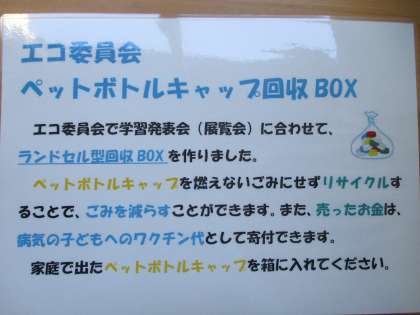 エコ委員会
ペットボトルキャップ回収BOX
エコ委員会で学習発表会（展覧会）に合わせて、
ランドセル型回収BOXを作りました。
ペットボトルキャップを燃えないごみにせずリサイクルす
ることで、ごみを減らすことができます。また、売ったお金は、
病気の子どもへのワクチン代として寄付できます。
家庭で出たペットボトルキャップを箱に入れてください。